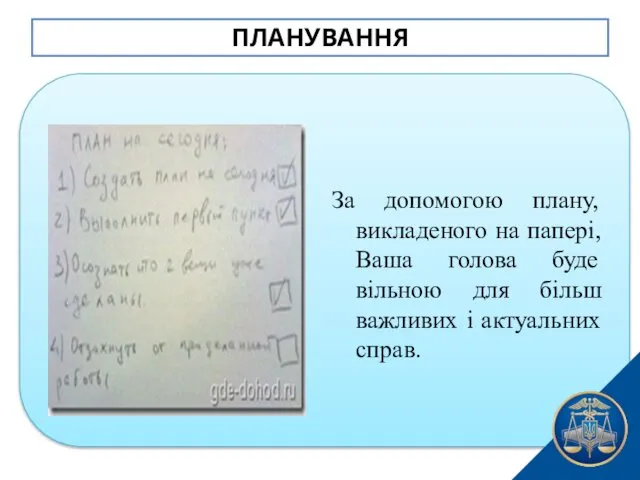 ПЛАНУВАННЯ
ПЛАН на сегодня:
1) Создать план на сегодня
2) Выполнить первый пункт
3) Осознать что 2 вещи уже
сделаны
4) Отдахнуть от проделанной
работы
gde-dohod.ru
За допомогою плану,
викладеного на папері,
Ваша голова буде
вільною для більш
важливих і актуальних
справ.